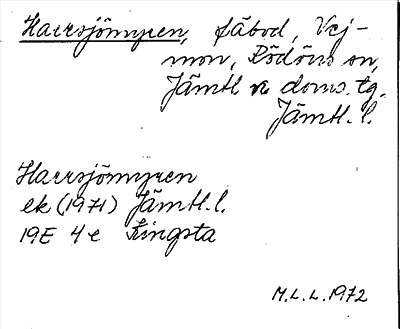 Harrsjömyren, fäbod, Vej-
mon, Rödöns sn,
Jämtl v doms. tg,
Jämtl. l.
Harrsjömyren
ek (1971) Jämtl. l.
19E 4e Kingsta
M.L.L. 1972